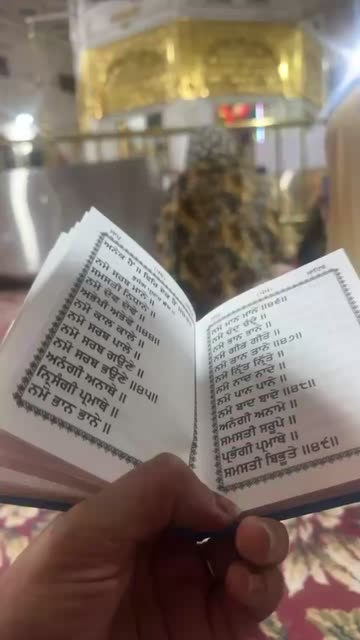 ਜਾਪੁ
ਅਨੇਕ ਹੈਂ ॥ ਫਿਰਿ ਏਕ ਹੈਂ ॥
ਨਮੋ ਸਰਬ ਮਾਨੇ ॥
ਸਮਸਤੀ ਨਿਧਾਨੇ ॥
ਨਮੋ ਦੇਵ ਦੇਵੇ ॥
ਅਭੇਖੀ ਅਭੇਵੇ ॥੪੪॥
ਨਮੋ ਕਾਲ ਕਾਲੇ ॥
ਨਮੋ ਸਰਬ ਪਾਲੇ ॥
ਨਮੋ ਸਰਬ ਗਉਣੇ ॥
ਨਮੋ ਸਰਬ ਭਉਣੇ ॥੪੫॥
ਅਨੰਗੀ ਅਨਾਥੇ ॥
ਨ੍ਰਿਸੰਗੀ ਪ੍ਰਮਾਥੇ ॥
ਨਮੋ ਭਾਨ ਭਾਨੇ ॥
ਸਾਹਿਬ
ਨਮੋ ਮਾਨ ਮਾਨੇ ॥੪੬॥
ਨਮੋ ਚੰਦ੍ਰ ਚੰਦ੍ਰੇ ॥
ਨਮੋ ਭਾਨ ਭਾਨੇ ॥
ਨਮੋ ਗੀਤ ਗੀਤੇ ॥
ਨਮੋ ਤਾਨ ਤਾਨੇ ॥੪੭॥
ਨਮੋ ਨ੍ਰਿੱਤ ਨ੍ਰਿੱਤੇ ॥
ਨਮੋ ਨਾਦ ਨਾਦੇ ॥
ਨਮੋ ਪਾਨ ਪਾਨੇ ॥
ਨਮੋ ਬਾਦ ਬਾਦੇ ॥੪੮॥
ਅਨੰਗੀ ਅਨਾਮੇ ॥
ਸਮਸਤੀ ਸਰੂਪੇ ॥
ਪ੍ਰਭੰਗੀ ਪ੍ਰਮਾਥੇ ॥
ਸਮਸਤੀ ਬਿਭੂਤੇ ॥੪੯॥